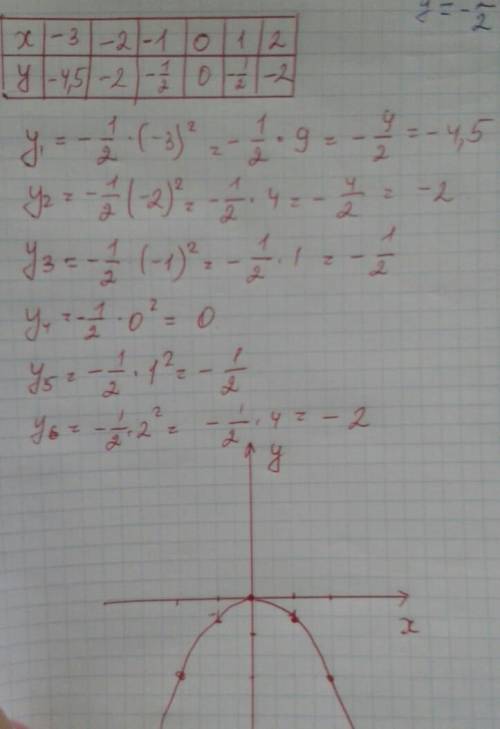 y = -/2
x | -3 | -2 | -1 | 0 | 1 | 2
y | -4,5 | -2 | -1/2 | 0 | -1/2 | -2
y₁ = -1/2 · (-3)² = -1/2 · 9 = -9/2 = -4,5
y₂ = -1/2 (-2)² = -1/2 · 4 = -4/2 = -2
y₃ = -1/2 (-1)² = -1/2 · 1 = -1/2
y₄ = -1/2 · 0² = 0
y₅ = -1/2 · 1² = -1/2
y₆ = -1/2 · 2² = -1/2 · 4 = -2
y
x